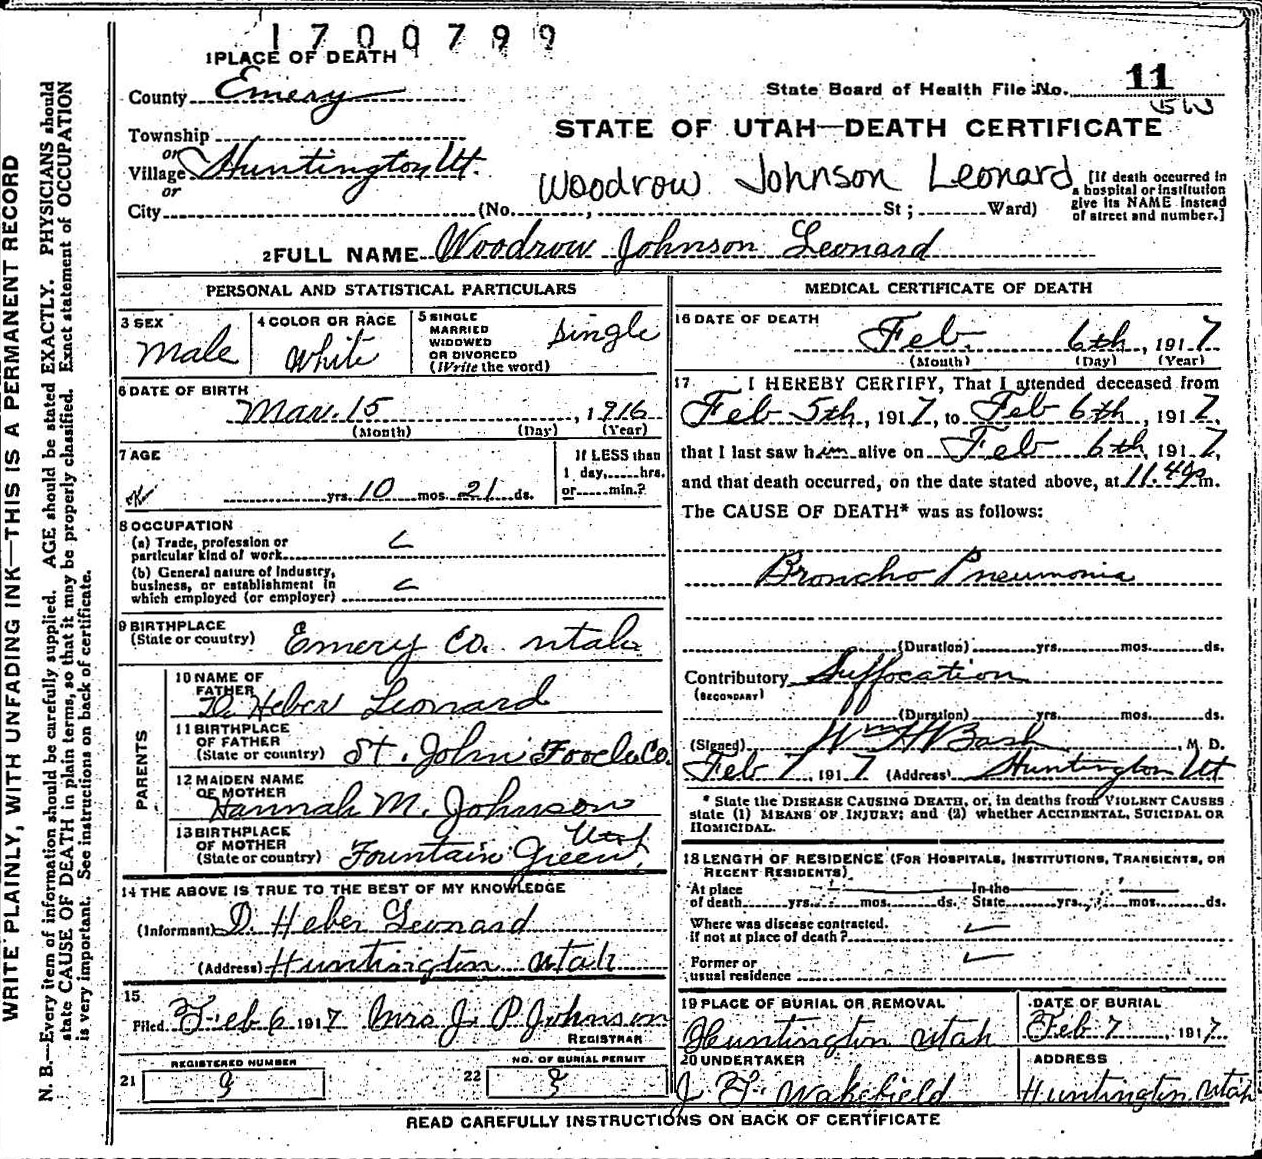 1700799
1 PLACE OF DEATH
County Emery
State Board of Health File No. 11
Township
or
Village Huntington Ut.
or
STATE OF UTAH—DEATH CERTIFICATE
Woodrow Johnson Leonard
City (No. , St; Ward)
[If death occurred in
a hospital or institution
give its NAME instead
of street and number.]
2 FULL NAME Woodrow Johnson Leonard
PERSONAL AND STATISTICAL PARTICULARS
3 SEX
Male
4 COLOR OR RACE
White
5 SINGLE
MARRIED
WIDOWED
OR DIVORCED
(Write the word)
Single
6 DATE OF BIRTH
Mar. 15, 1916
(Month) (Day) (Year)
7 AGE
yrs. 10 mos. 21 ds.
If LESS than
1 day, hrs.
or min.?
8 OCCUPATION
(a) Trade, profession or
particular kind of work
(b) General nature of industry,
business, or establishment in
which employed (or employer)
9 BIRTHPLACE
(State or country) Emery Co. Utah
PARENTS
10 NAME OF
FATHER
D. Heber Leonard
11 BIRTHPLACE
OF FATHER
(State or country) St. John Tooele Co.
12 MAIDEN NAME
OF MOTHER
Hannah M. Johnson
13 BIRTHPLACE
OF MOTHER
(State or country) Fountain Green Utah
14 THE ABOVE IS TRUE TO THE BEST OF MY KNOWLEDGE
(Informant) D. Heber Leonard
(Address) Huntington Utah
15
Filed Feb 6 1917 Mrs J. P. Johnson
REGISTRAR
REGISTERED NUMBER
21
NO. OF BURIAL PERMIT
22
MEDICAL CERTIFICATE OF DEATH
16 DATE OF DEATH
Feb. 6th, 1917
(Month) (Day) (Year)
17 I HEREBY CERTIFY, That I attended deceased from
Feb 5th, 1917, to Feb 6th, 1917,
that I last saw him alive on Feb 6th, 1917,
and that death occurred, on the date stated above, at m.
The CAUSE OF DEATH* was as follows:
Broncho Pneumonia
(Duration) yrs. mos. ds.
Contributory Suffocation
(SECONDARY)
(Duration) yrs. mos. ds.
(Signed) Wm H , M. D.
Feb 7 1917 (Address) Huntington Ut
* State the DISEASE CAUSING DEATH, or, in deaths from VIOLENT CAUSES
state (1) MEANS OF INJURY; and (2) whether ACCIDENTAL, SUICIDAL OR
HOMICIDAL.
18 LENGTH OF RESIDENCE (FOR HOSPITALS, INSTITUTIONS, TRANSIENTS, OR
RECENT RESIDENTS)
At place In the
of death yrs. mos. ds. State yrs. mos. ds.
Where was disease contracted.
if not at place of death?
Former or
usual residence
19 PLACE OF BURIAL OR REMOVAL
Huntington Utah
DATE OF BURIAL
Feb 7, 1917
20 UNDERTAKER
Wakefield
ADDRESS
Huntington Utah
READ CAREFULLY INSTRUCTIONS ON BACK OF CERTIFICATE
WRITE PLAINLY, WITH UNFADING INK—THIS IS A PERMANENT RECORD
N. B.—Every item of information should be carefully supplied. AGE should be stated EXACTLY. PHYSICIANS should
state CAUSE OF DEATH in plain terms, so that it may be properly classified. Exact statement of OCCUPATION
is very important. See instructions on back of certificate.